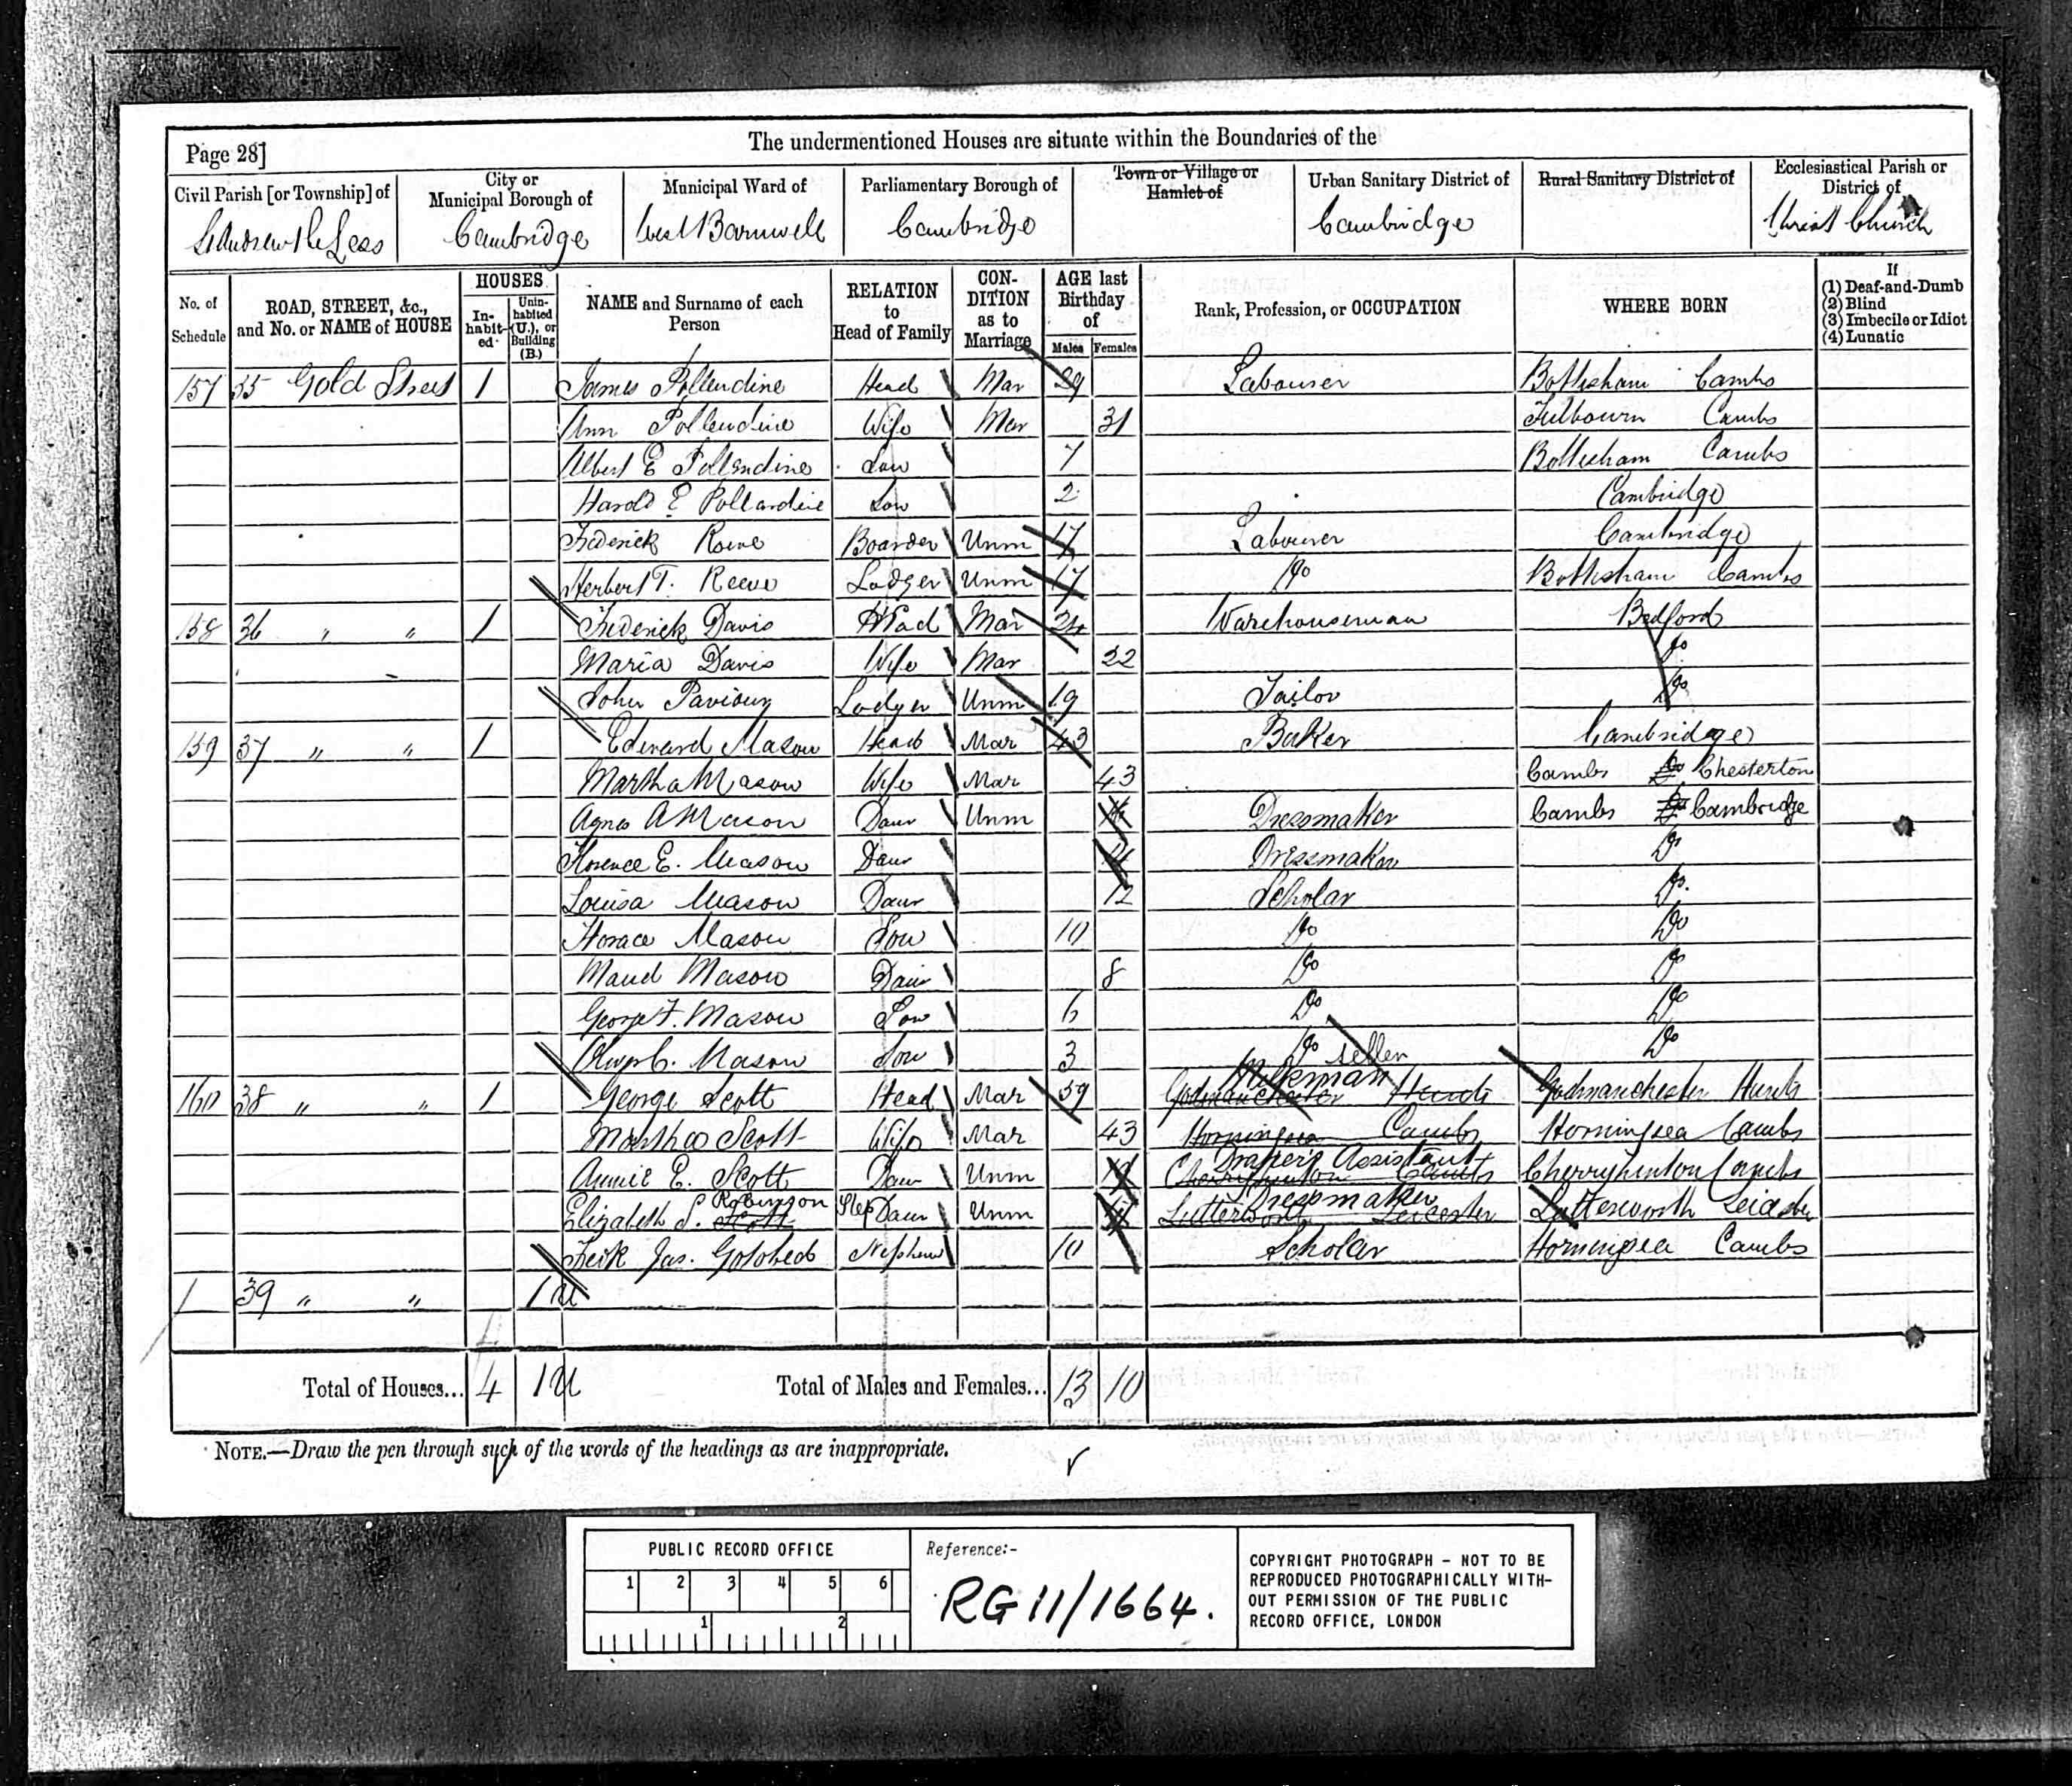 The undermentioned Houses are situate within the Boundaries of the
Page 28]
Civil Parish [or Township] of
St Andrew the Less
City or Municipal Borough of
Cambridge
Municipal Ward of
West Barnwell
Parliamentary Borough of
Cambridge
Town or Village or Hamlet of
Urban Sanitary District of
Cambridge
Rural Sanitary District of
Ecclesiastical Parish or District of
Christ Church
No. of Schedule
ROAD, STREET, &c., and No. or NAME of HOUSE
HOUSES
In-habit-ed
Unin-habited (U.), or Building (B.)
NAME and Surname of each Person
RELATION to Head of Family
CON-DITION as to Marriage
AGE last Birthday of
Males Females
Rank, Profession, or OCCUPATION
WHERE BORN
If
(1) Deaf-and-Dumb
(2) Blind
(3) Imbecile or Idiot
(4) Lunatic
157 35 Gold Street 1 James Pollendine Head Mar 29 Labourer Bottisham Cambs
Ann Pollendine Wife Mar 31 Fulbourn Cambs
Albert E Pollendine Son 7 Bottisham Cambs
Harold E Pollardine Son 2 Cambridge
Frederick Boarder Unm 17 Labourer Cambridge
Herbert T. Reeve Lodger Unm 17 Do Bottisham Cambs
158 36 " " 1 Frederick Davis Head Mar 24 Warehouseman Bedford
Maria Davis Wife Mar 22 Do
John Lodger Unm 19 Tailor Do
159 37 " " 1 Edward Mason Head Mar 43 Baker Cambridge
Martha Mason Wife Mar 43 Cambs Do Chesterton
Agnes A Mason Daur Unm Dressmaker Cambs Do Cambridge
Florence E. Mason Daur 14 Dressmaker Do
Louisa Mason Daur 12 Scholar Do
Horace Mason Son 10 Do Do
Maud Mason Daur 8 Do Do
George F. Mason Son 6 Do Do
C. Mason Son 3 Do Do
seller
Milkman
160 38 " " 1 George Scott Head Mar 59 Godmanchester Hunts Godmanchester Hunts
Martha Scott Wife Mar 43 Horningsea Cambs Horningsea Cambs
Draper's Assistant
Annie E. Scott Daur Unm Cherryhinton Cambs Cherryhinton Cambs
Robinson Dressmaker
Elizabeth S. Scott Step Daur Unm Lutterworth Leicester Lutterworth Leicester
Fredk Jas. Nephew 10 Scholar Horningsea Cambs
1 39 " " 1 U
4
Total of Houses... 4 1 U Total of Males and Females... 13 10
NOTE.—Draw the pen through such of the words of the headings as are inappropriate.
PUBLIC RECORD OFFICE
1 2 3 4 5 6
1 2
Reference:-
RG 11/1664.
COPYRIGHT PHOTOGRAPH - NOT TO BE
REPRODUCED PHOTOGRAPHICALLY WITH-
OUT PERMISSION OF THE PUBLIC
RECORD OFFICE, LONDON